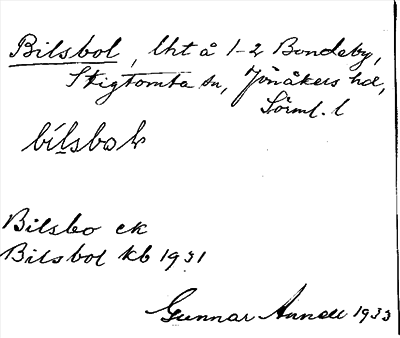 Bilsbol, lht å 1-2 Bondeby,
Stigtomta sn, Jönåkers hd,
Sörml. l
Bilsbo ek
Bilsbol kb 1931
Gunnar 1933